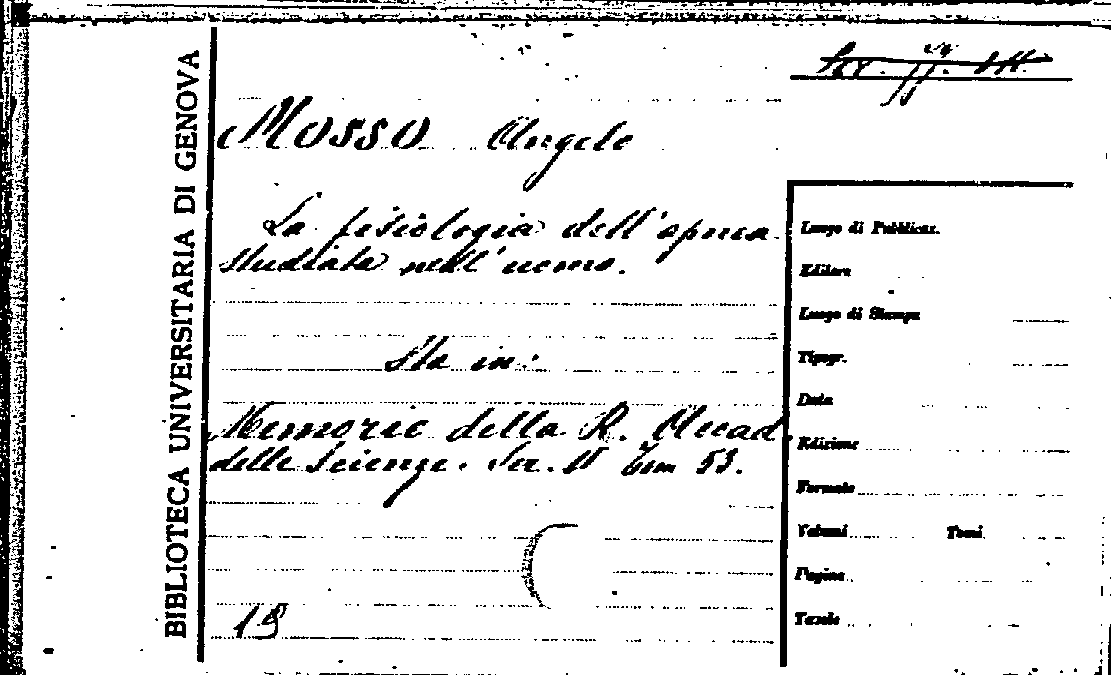 BIBLIOTECA UNIVERSITARIA DI GENOVA
MOSSO Angelo
La fisiologia dell'apnea
studiata nell'uomo.
Sta in:
Memorie della R. Accad.
delle Scienze. Ser. II Tom 53.
19
Luogo di Pubblicaz.
Editore
Luogo di Stampa
Tipogr.
Data
Edizione
Formato
Volumi Tomi
Pagine
Tavole